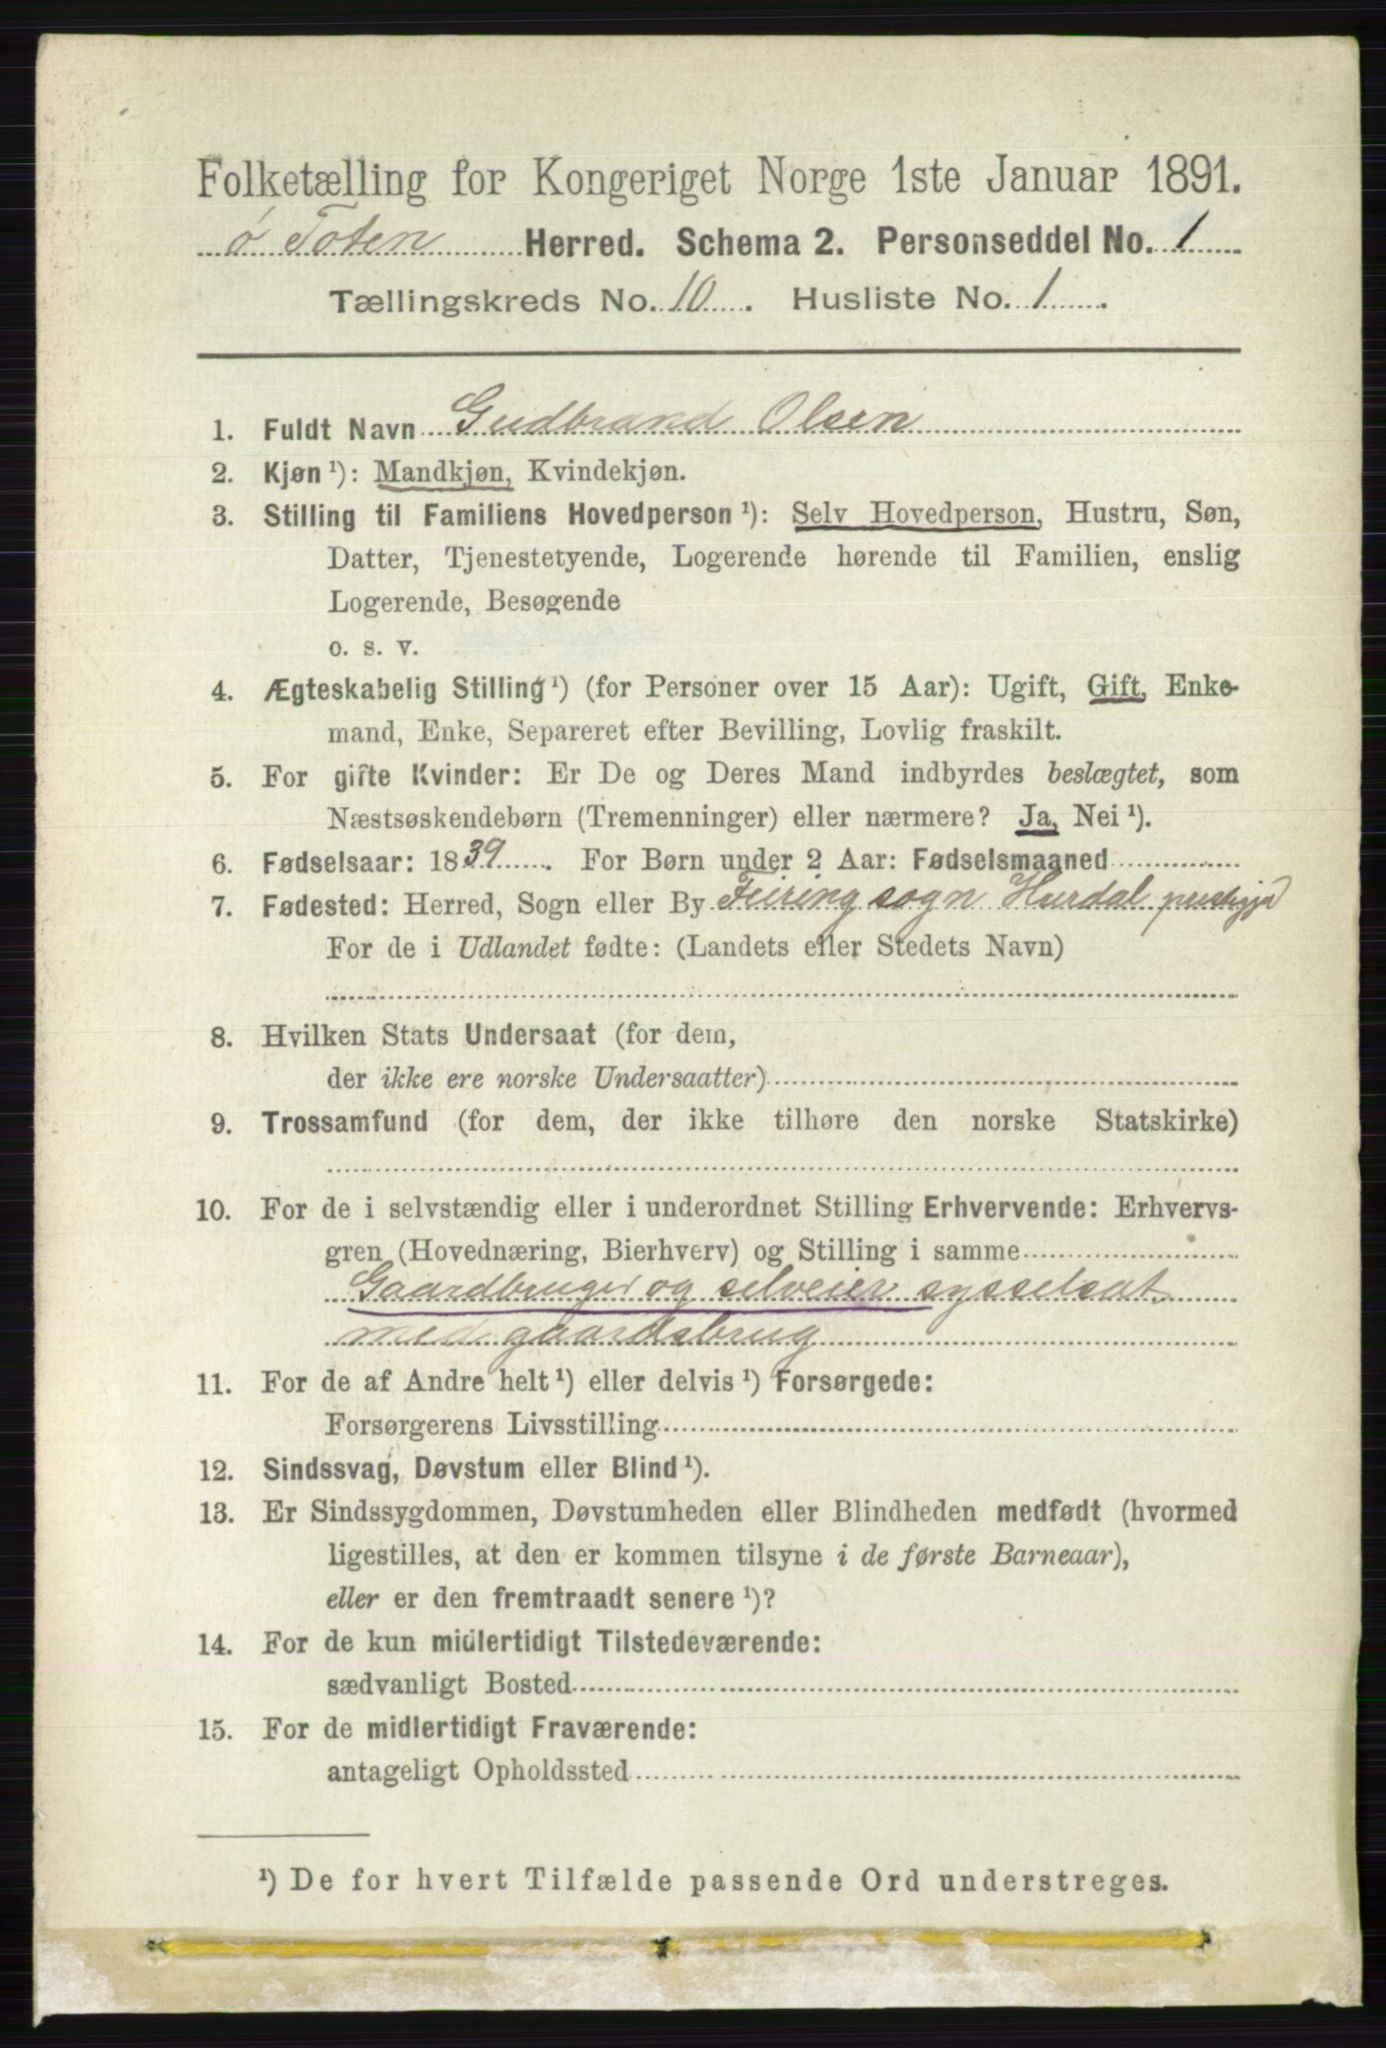 Folketælling for Kongeriget Norge 1ste Januar 1891.
Ø Toten Herred. Schema 2. Personseddel No. 1
Tællingskreds No. 10. Husliste No. 1.
1. Fuldt Navn Gudbrand Olsen
2. Kjøn ¹): Mandkjøn, Kvindekjøn.
3. Stilling til Familiens Hovedperson ¹): Selv Hovedperson, Hustru, Søn,
Datter, Tjenestetyende, Logerende hørende til Familien, enslig
Logerende, Besøgende
o. s. v.
4. Ægteskabelig Stilling ¹) (for Personer over 15 Aar): Ugift, Gift, Enke-
mand, Enke, Separeret efter Bevilling, Lovlig fraskilt.
5. For gifte Kvinder: Er De og Deres Mand indbyrdes beslægtet, som
Næstsøskendebørn (Tremenninger) eller nærmere? Ja, Nei ¹).
6. Fødselsaar: 1839. For Børn under 2 Aar: Fødselsmaaned
7. Fødested: Herred, Sogn eller By Feiring sogn Hurdal prestgjd
For de i Udlandet fødte: (Landets eller Stedets Navn)
8. Hvilken Stats Undersaat (for dem,
der ikke ere norske Undersaatter)
9. Trossamfund (for dem, der ikke tilhøre den norske Statskirke)
10. For de i selvstændig eller i underordnet Stilling Erhvervende: Erhvervs-
gren (Hovednæring, Bierhverv) og Stilling i samme
Gaardbruger og selveier sysselsat
med gaardsbrug
11. For de af Andre helt ¹) eller delvis ¹) Forsørgede:
Forsørgerens Livsstilling
12. Sindssvag, Døvstum eller Blind ¹).
13. Er Sindssygdommen, Døvstumheden eller Blindheden medfødt (hvormed
ligestilles, at den er kommen tilsyne i de første Barneaar),
eller er den fremtraadt senere ¹)?
14. For de kun midlertidigt Tilstedeværende:
sædvanligt Bosted
15. For de midlertidigt Fraværende:
antageligt Opholdssted
¹) De for hvert Tilfælde passende Ord understreges.